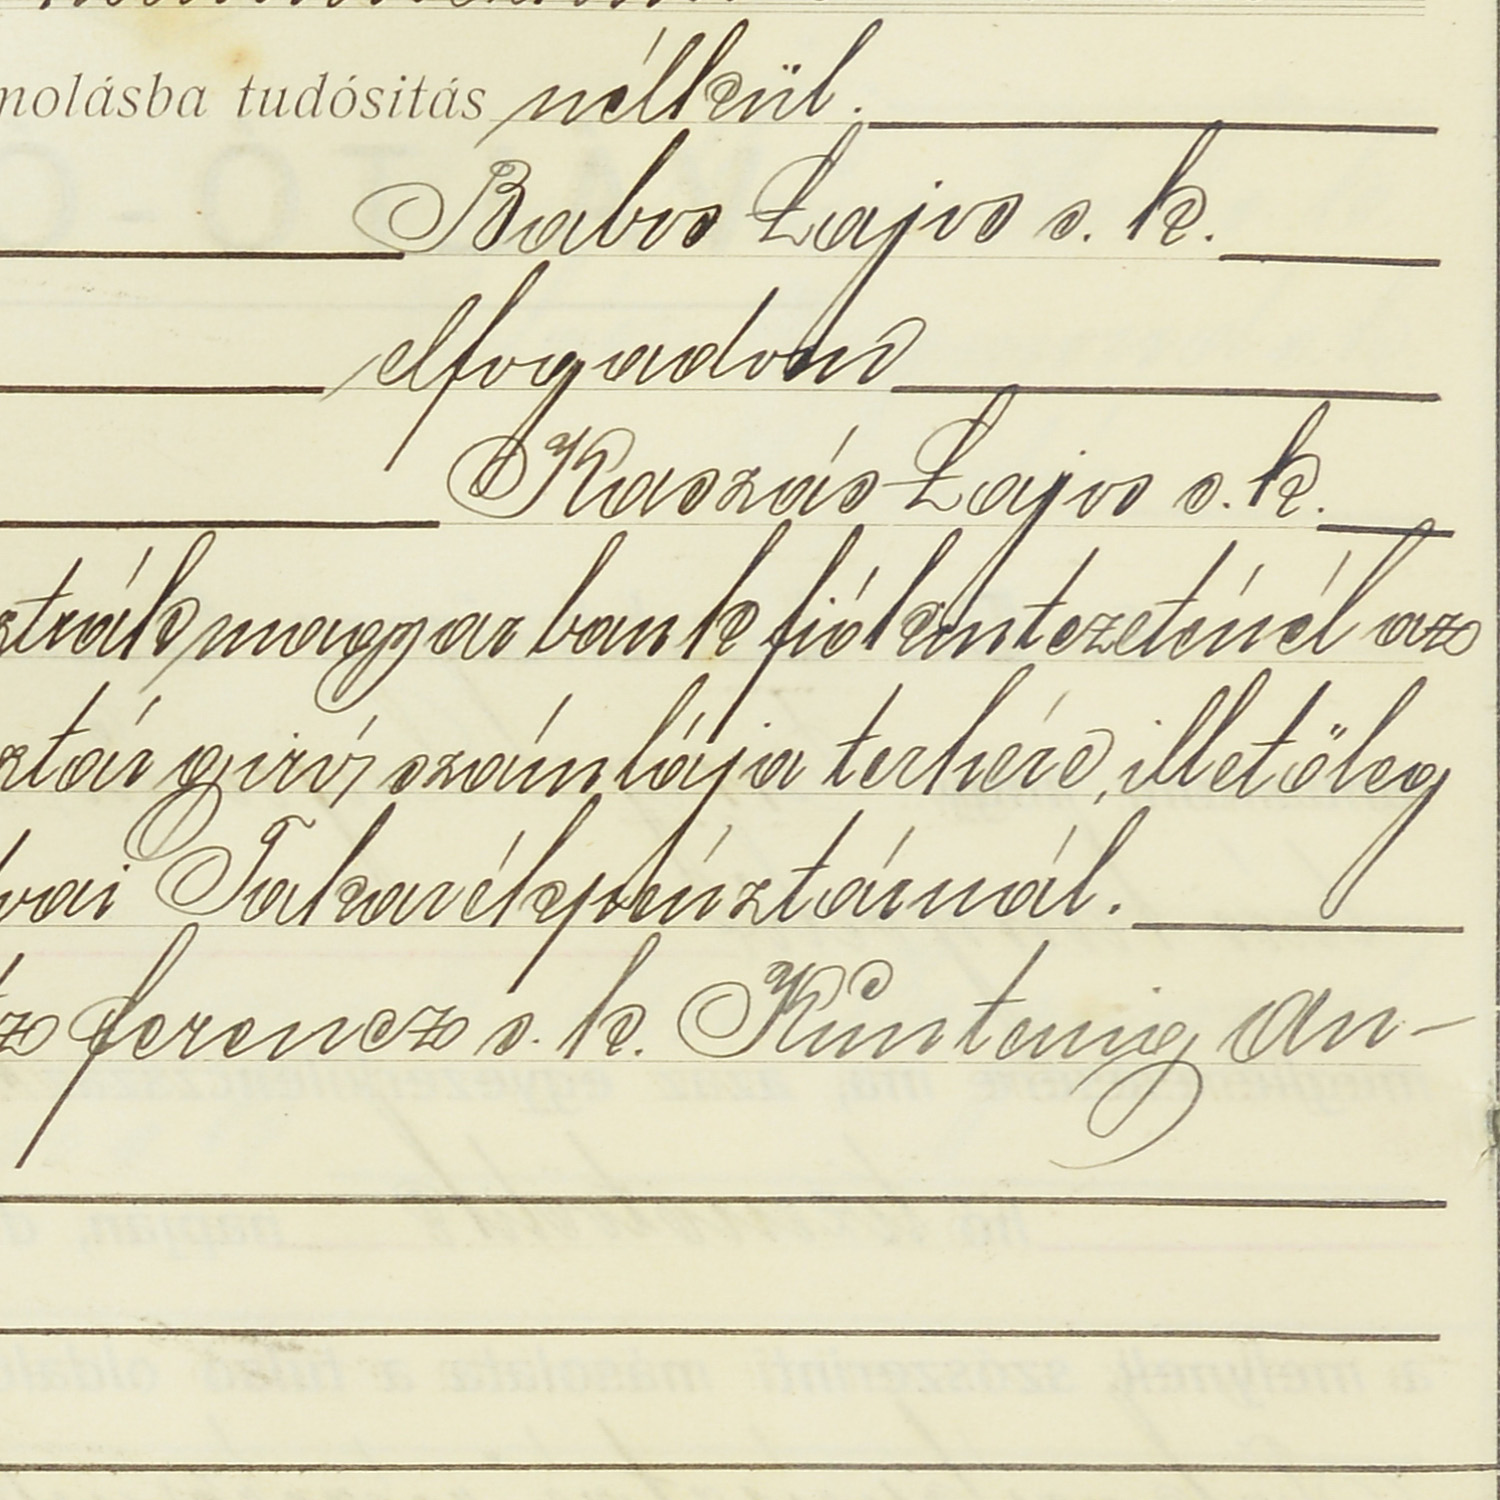 molásba tudósitás nélkül.
Babos Lajos s. k.
elfogadom
Kaszás Lajos s. k.
sztrák magyar bank fiókintezeténél az
sztár giró számlája terhére, illetőleg
vai Takarékpénztárnál.
tz ferencz s. k. An-